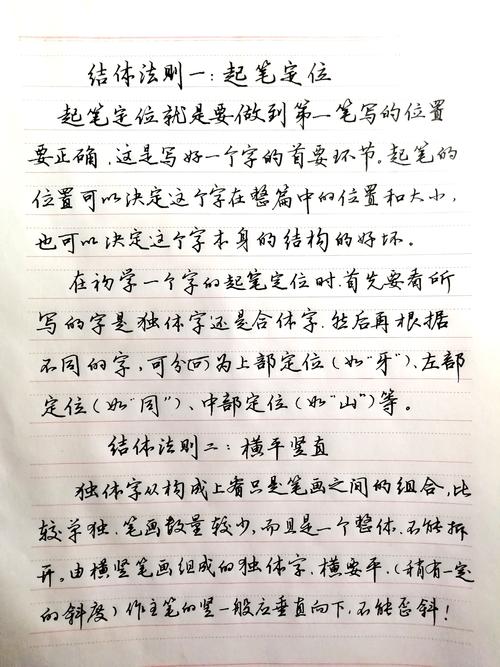 结体法则一：起笔定位
起笔定位就是要做到第一笔写的位置
要正确，这是写好一个字的首要环节。起笔的
位置可以决定这个字在整篇中的位置和大小，
也可以决定这个字本身的结构的好坏。
在初学一个字的起笔定位时，首先要看所
写的字是独体字还是合体字，然后再根据
不同的字，可分(四)为上部定位（如"牙"）、左部
定位（如"同"）、中部定位（如"山"）等。
结体法则二：横平竖直
独体字从构成上看只是笔画之间的组合，比
较单独，笔画数量较少，而且是一个整体，不能拆
开。由横竖笔画组成的独体字，横要平，（稍有一定
的斜度）作主笔的竖一般应垂直向下，不能歪斜！